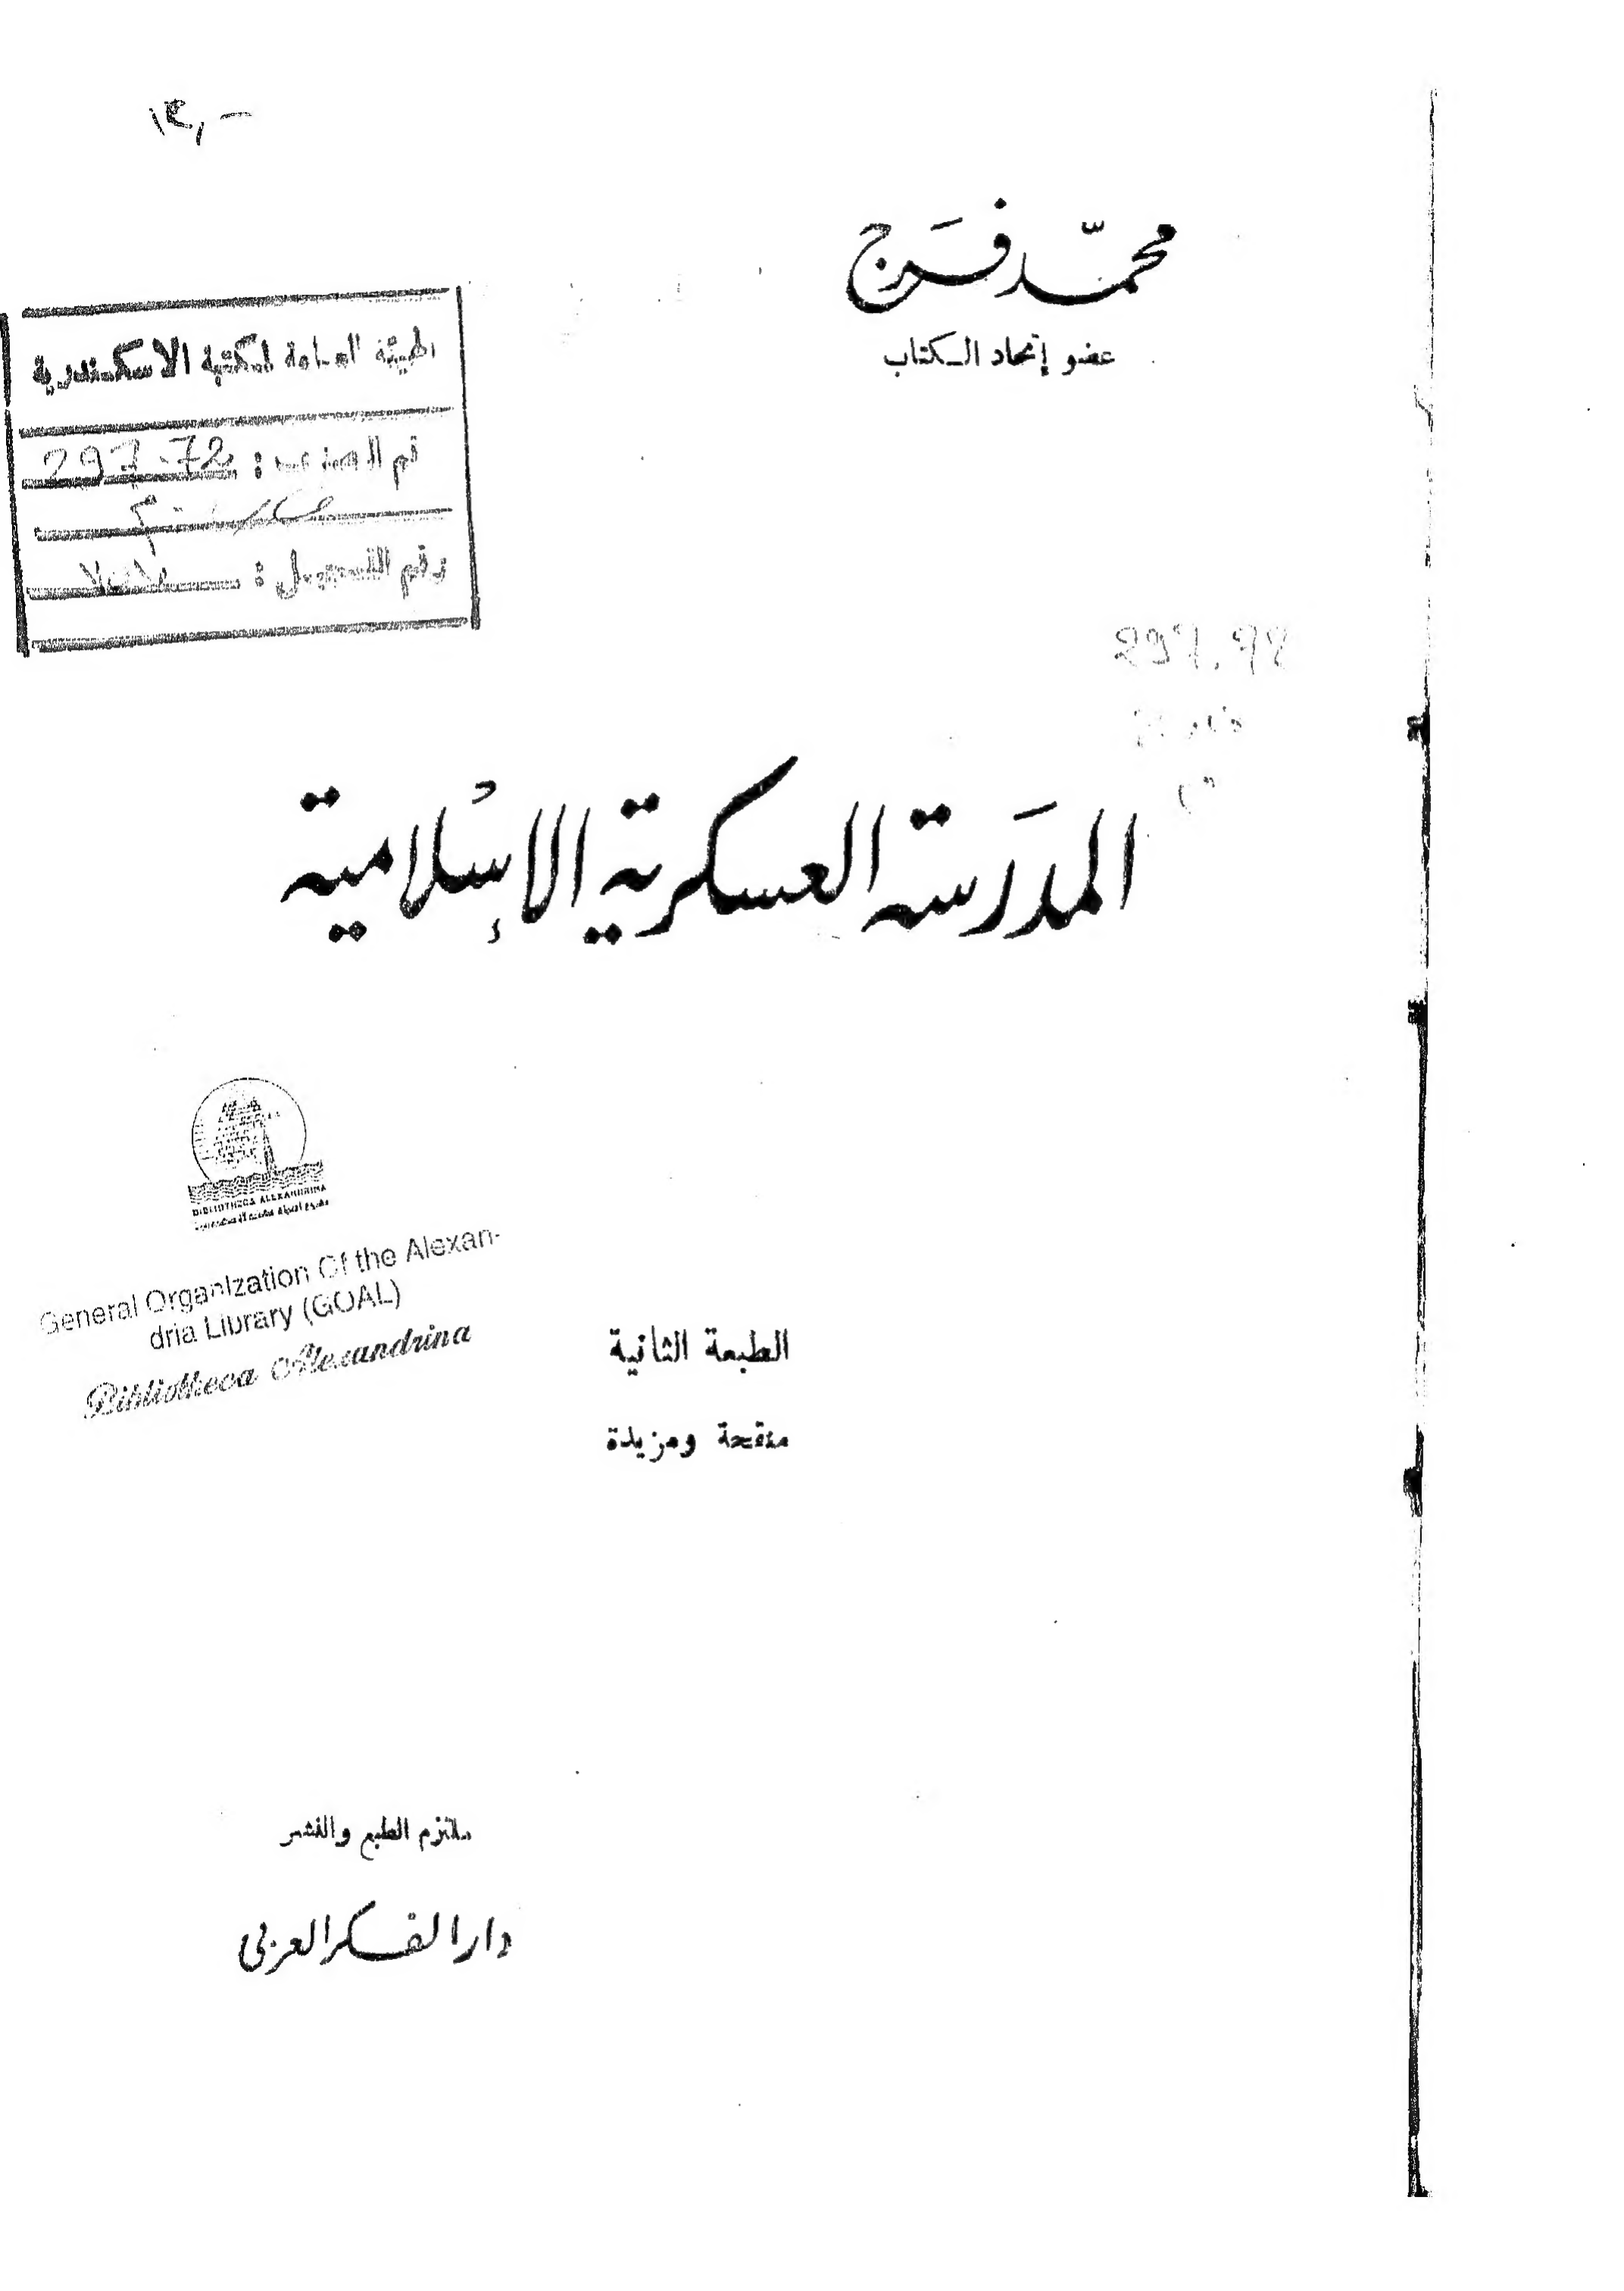 محمّد فَرج
عضو إتحاد الكتاب
الهيئة العامة لمكتبة الاسكندرية
رقم التصنيف : 297.72
رقم التسجيل :
المدَرسة العسكرية الإسْلامية
BIBLIOTHECA ALEXANDRINA
General Organization Of the Alexan-
dria Library (GOAL)
Bibliotheca Alexandrina
الطبعة الثانية
منقحة ومزيدة
ملتزم الطبع والنشر
دار الفكر العربى